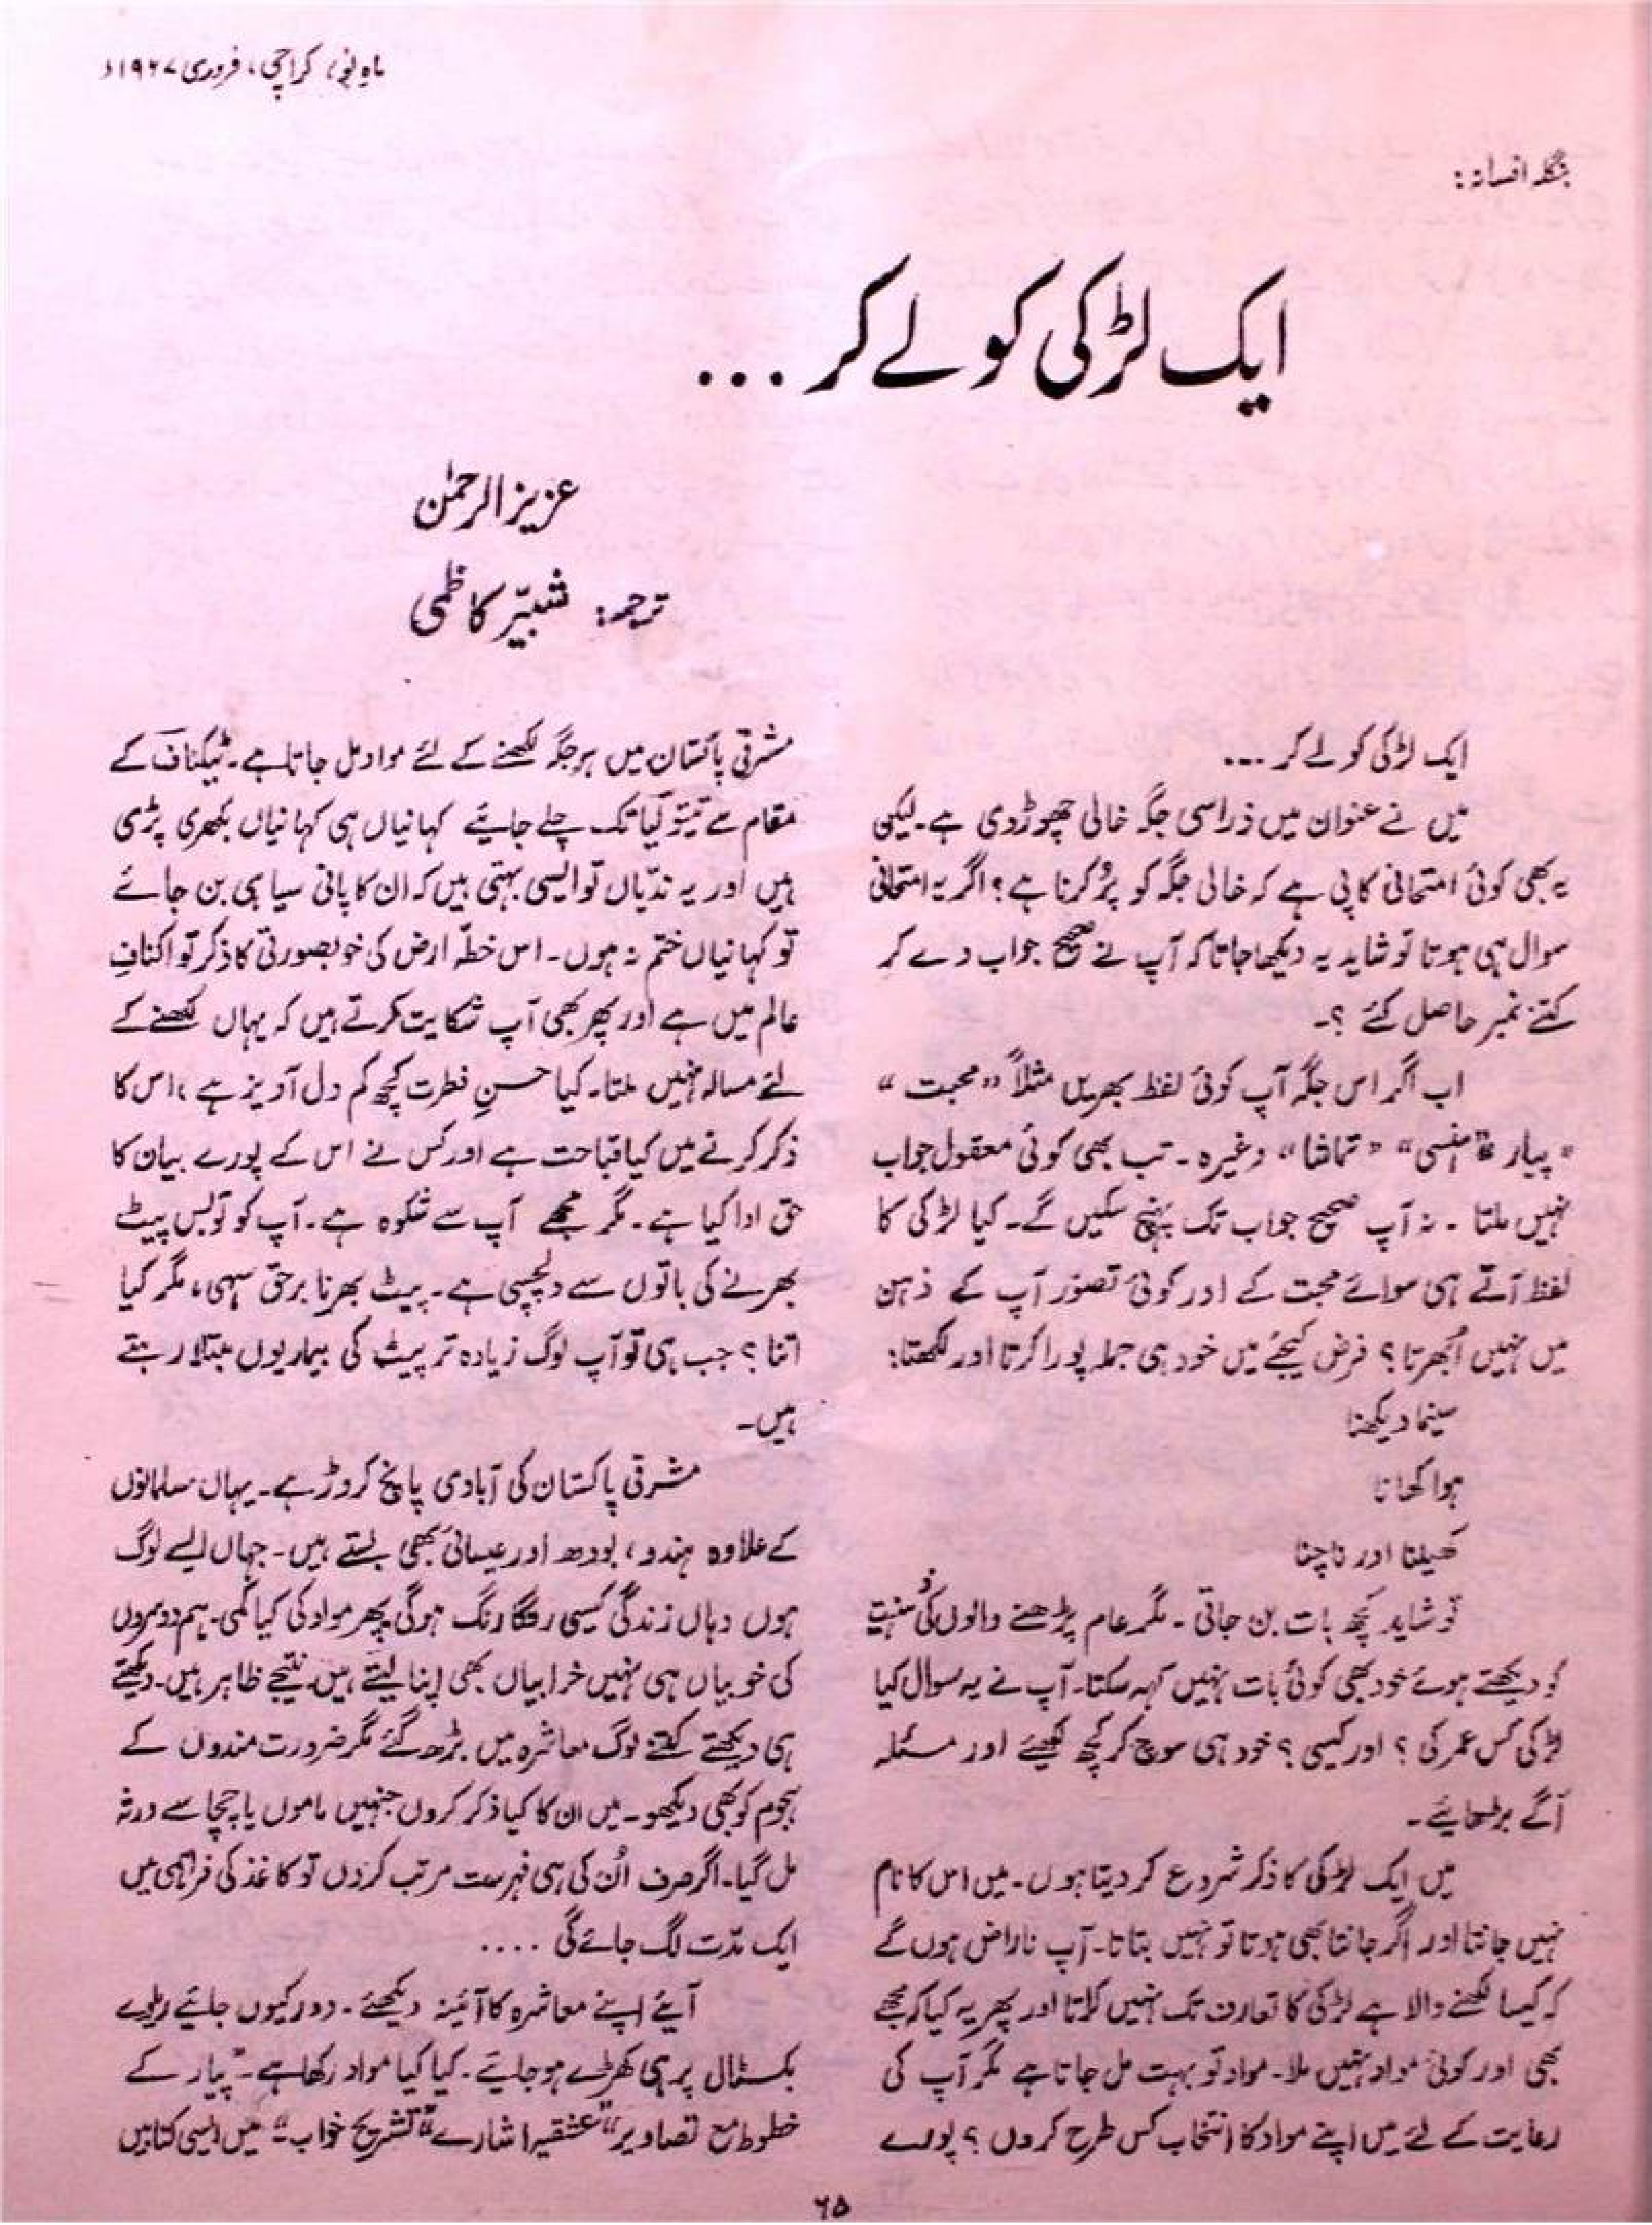 ماہِ نو، کراچی، فروری ۱۹۶۷ء
بنگلہ افسانہ:
ایک لڑکی کو لے کر ...
عزیز الرحمٰن
ترجمہ: شبیّر کاظمی
ایک لڑکی کو لے کر ...
میں نے عنوان میں ذرا سی جگہ خالی چھوڑ دی ہے۔ لیکن
یہ بھی کوئی امتحانی کاپی ہے کہ خالی جگہ کو پُر کرنا ہے؟ اگر یہ امتحانی
سوال ہی ہوتا تو شاید یہ دیکھا جاتا کہ آپ نے صحیح جواب دے کر
کتنے نمبر حاصل کئے ؟۔
اب اگر اس جگہ آپ کوئی لفظ بھر یں مثلاً "محبت"
"پیار" "ہنسی" "تماشا" وغیرہ۔ تب بھی کوئی معقول جواب
نہیں ملتا۔ نہ آپ صحیح جواب تک پہنچ سکیں گے۔ کیا لڑکی کا
لفظ آتے ہی سوائے محبت کے اور کوئی تصوّر آپ کے ذہن
میں نہیں اُبھرتا؟ فرض کیجئے میں خود ہی جملہ پورا کرتا اور لکھتا:
سینما دیکھنا
ہوا کھانا
کھیلنا اور ناچنا
تو شاید کچھ بات بن جاتی۔ مگر عام پڑھنے والوں کی ذہنیت
کو دیکھتے ہوئے خود بھی کوئی بات نہیں کہہ سکتا۔ آپ نے یہ سوال کیا
لڑکی کس عمر کی ؟ اور کیسی ؟ خود ہی سوچ کر کچھ لکھئے اور مسئلہ
آگے بڑھائیے۔
میں ایک لڑکی کا ذکر شروع کر دیتا ہوں۔ میں اس کا نام
نہیں جانتا اور اگر جانتا بھی ہوتا تو نہیں بتاتا۔ آپ ناراض ہوں گے
کہ کیسا لکھنے والا ہے لڑکی کا تعارف تک نہیں کراتا اور پھر یہ کیا کہ مجھے
بھی اور کوئی مواد نہیں ملا۔ مواد تو بہت مل جاتا ہے مگر آپ کی
رعایت کے لئے میں اپنے مواد کا انتخاب کس طرح کروں ؟ پورے
مشرقی پاکستان میں ہر جگہ لکھنے کے لئے مواد مل جاتا ہے۔ ٹیکناف کے
مقام سے تیتولیا تک چلے جائیے کہانیاں ہی کہانیاں بکھری پڑی
ہیں اور یہ ندّیاں تو ایسی بہتی ہیں کہ ان کا پانی سیاہی بن جائے
تو کہانیاں ختم نہ ہوں۔ اس خطہ ارض کی خوبصورتی کا ذکر تو اکنافِ
عالم میں ہے اور پھر بھی آپ شکایت کرتے ہیں کہ یہاں لکھنے کے
لئے مسالہ نہیں ملتا۔ کیا حسنِ فطرت کچھ کم دل آویز ہے، اس کا
ذکر کرنے میں کیا قباحت ہے اور کس نے اس کے پورے بیان کا
حق ادا کیا ہے۔ مگر مجھے آپ سے شکوہ ہے۔ آپ کو تو بس پیٹ
بھرنے کی باتوں سے دلچسپی ہے۔ پیٹ بھرنا برحق سہی، مگر کیا
اتنا ؟ جب ہی تو آپ لوگ زیادہ تر پیٹ کی بیماریوں مبتلا رہتے
ہیں۔
مشرقی پاکستان کی آبادی پانچ کروڑ ہے۔ یہاں مسلمانوں
کے علاوہ ہندو، بودھ اور عیسائی بھی بستے ہیں۔ جہاں ایسے لوگ
ہوں وہاں زندگی کیسی رنگا رنگ ہوگی پھر مواد کی کیا کمی۔ ہم دوسروں
کی خوبیاں ہی نہیں خرابیاں بھی اپنا لیتے ہیں۔ نتیجے ظاہر ہیں۔ دیکھتے
ہی دیکھتے کتنے لوگ معاشرہ میں بڑھ گئے مگر ضرورت مندوں کے
ہجوم کو بھی دیکھو۔ میں ان کا کیا ذکر کروں جنہیں ماموں یا چچا سے ورثہ
مل گیا۔ اگر صرف اُن کی ہی فہرست مرتب کر دوں تو کاغذ کی فراہمی میں
ایک مدّت لگ جائے گی ....
آیئے اپنے معاشرہ کا آئینہ دیکھئے۔ دور کیوں جائیے ریلوے
بکسٹال پر ہی کھڑے ہو جایئے۔ کیا کیا مواد رکھا ہے۔ "پیار کے
خطوط مع تصاویر" "عشقیہ اشارے" "تشریح خواب"۔ میں ایسی کتابیں
۶۵